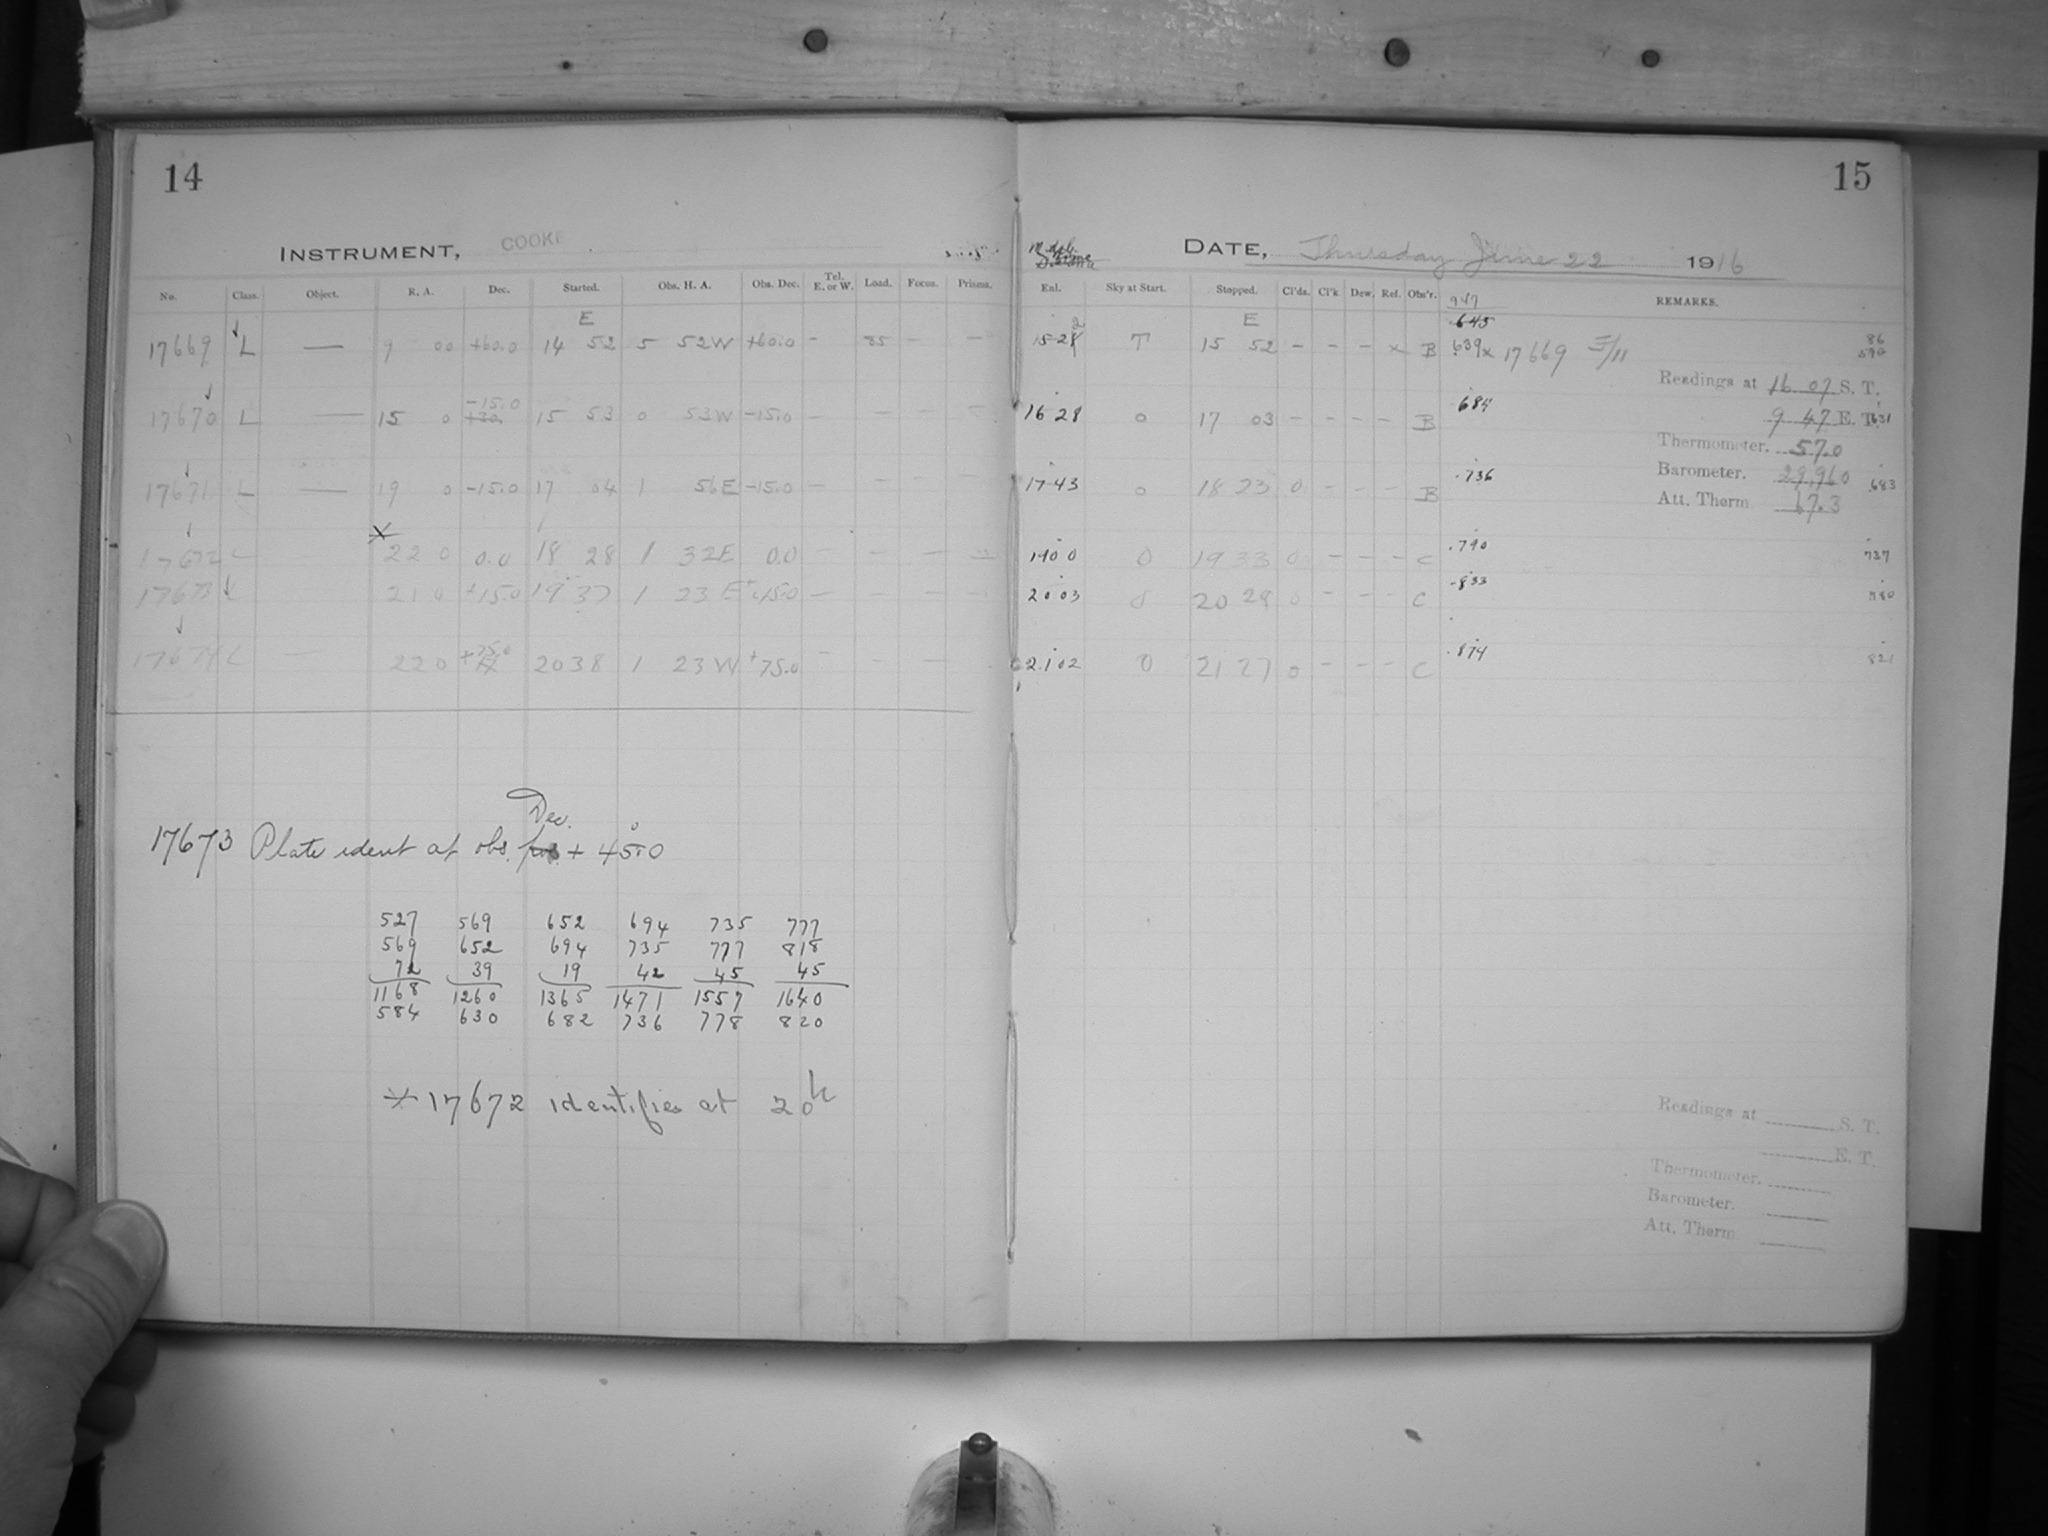 14
INSTRUMENT, COOKE
No. Class. Object. R. A. Dec. Started. Obs. H. A. Obs. Dec. Tel. E. or W. Load. Focus. Prisms.
E
17669 L — 9 00 +60.0 14 52 5 52W +60.0 - 85 - -
17670 L — 15 0 -15.0 15 53 0 53W -15.0 - - - -
17671 L — 19 0 -15.0 17 04 1 56E -15.0 - - - -
17672 L 22 0 0.0 18 28 1 32E 0.0 - - - -
17673 L 21 0 +15.0 19 37 1 23 E +45.0 - - - -
17674 L — 22 0 +75.0 20 38 1 23 W +75.0 - - - -
Dec.
17673 Plate ident at obs. + 45°.0
527 569 652 694 735 777
569 652 694 735 777 818
72 39 19 42 45 45
1168 1260 1365 1471 1557 1640
584 630 682 736 778 820
* 17672 identifies at 20h
15
DATE, Thursday June 22 1916
Enl. Sky at Start. Stopped. Cl'ds. Cl'k Dew. Ref. Obs'r. REMARKS.
947
E .645
15 28 T 15 52 - - - x B .639x 17669 F/11
86
590
Readings at 16 07 S. T.
16 28 0 17 03 - - - - B .684
9 47 E. T. 631
Thermometer. 57.0
17 43 0 18 23 0 - - - B .736
Barometer. 29.960 .683
Att. Therm 67.3
19 00 0 19 33 0 - - - C .790 737
20 03 0 20 28 0 - - - C .833 780
21 02 0 21 27 0 - - - C .874 821
Readings at S. T.
E. T.
Thermometer.
Barometer.
Att. Therm